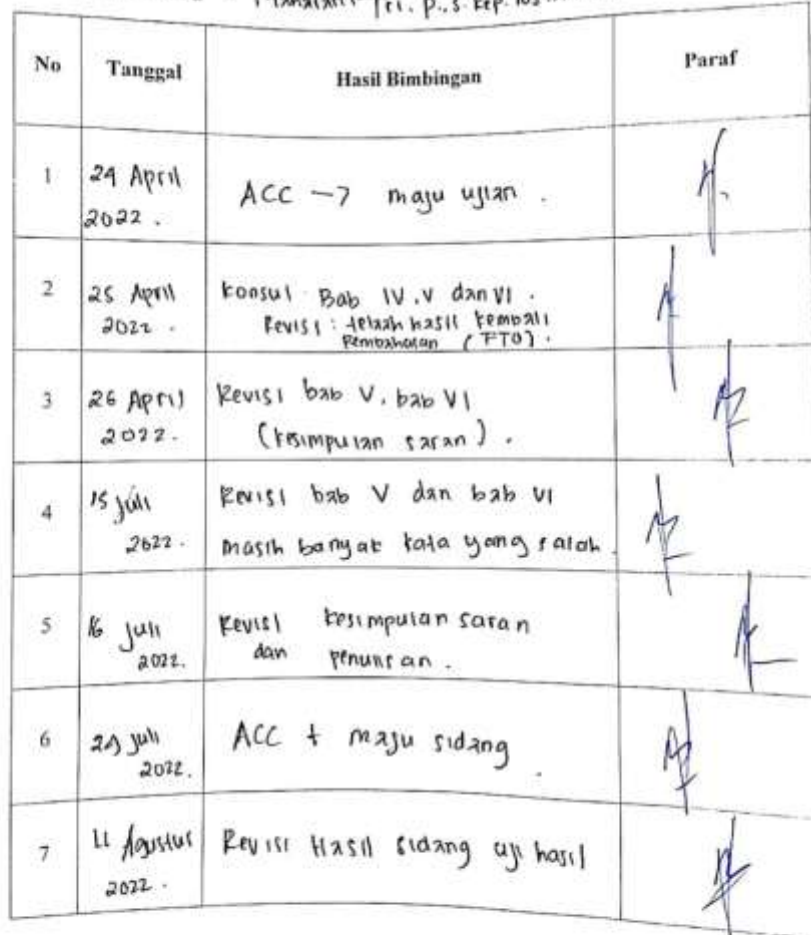 Tri. P., S. Kep. Ns
No Tanggal Hasil Bimbingan Paraf
1 24 April 2022. ACC -> maju ujian.
2 25 April 2022. Konsul Bab IV. V dan VI.
Revisi: telaah hasil kembali
Pembahasan (FTO).
3 26 April 2022. Revisi bab V. bab VI
(kesimpulan saran).
4 15 Juli 2022. Revisi bab V dan bab VI
masih banyak kata yang salah.
5 16 Juli 2022. Revisi kesimpulan saran
dan penulisan.
6 Juli 2022. ACC + maju sidang.
7 11 Agustus 2022. Revisi Hasil sidang uji hasil